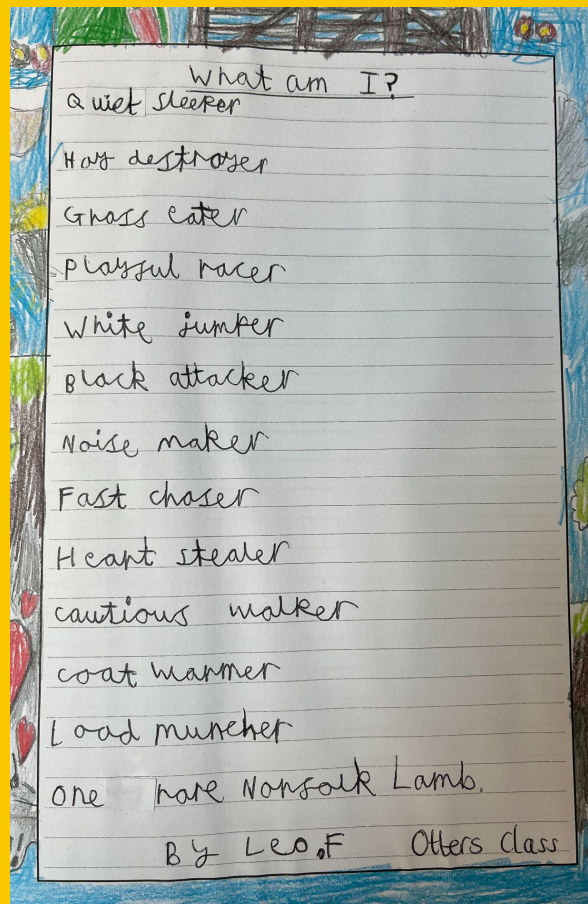 What am I?
Quiet sleeper
Hay destroyer
Grass eater
Playful racer
White jumper
Black attacker
Noise maker
Fast chaser
Heart stealer
cautious walker
coat warmer
Load muncher
one rare Norfolk Lamb.
By Leo.F Otters Class